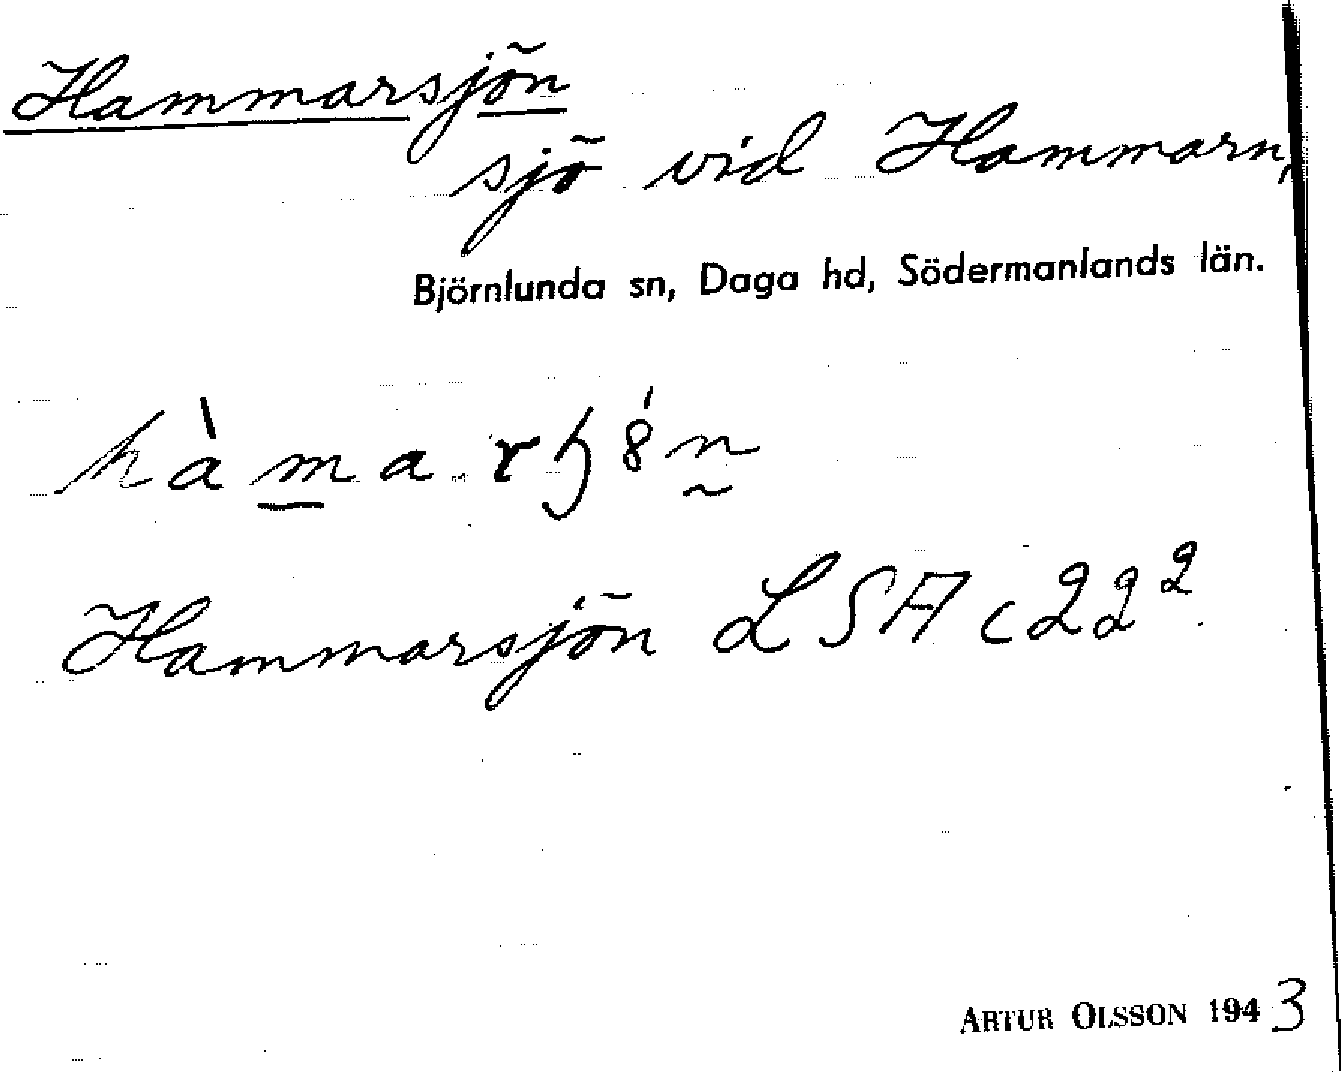 Hammarsjön
sjö vid Hammarn,
Björnlunda sn, Daga hd, Södermanlands län.
hàmarɧ8́n
Hammarsjön LSA c22²
ARTUR OLSSON 1943